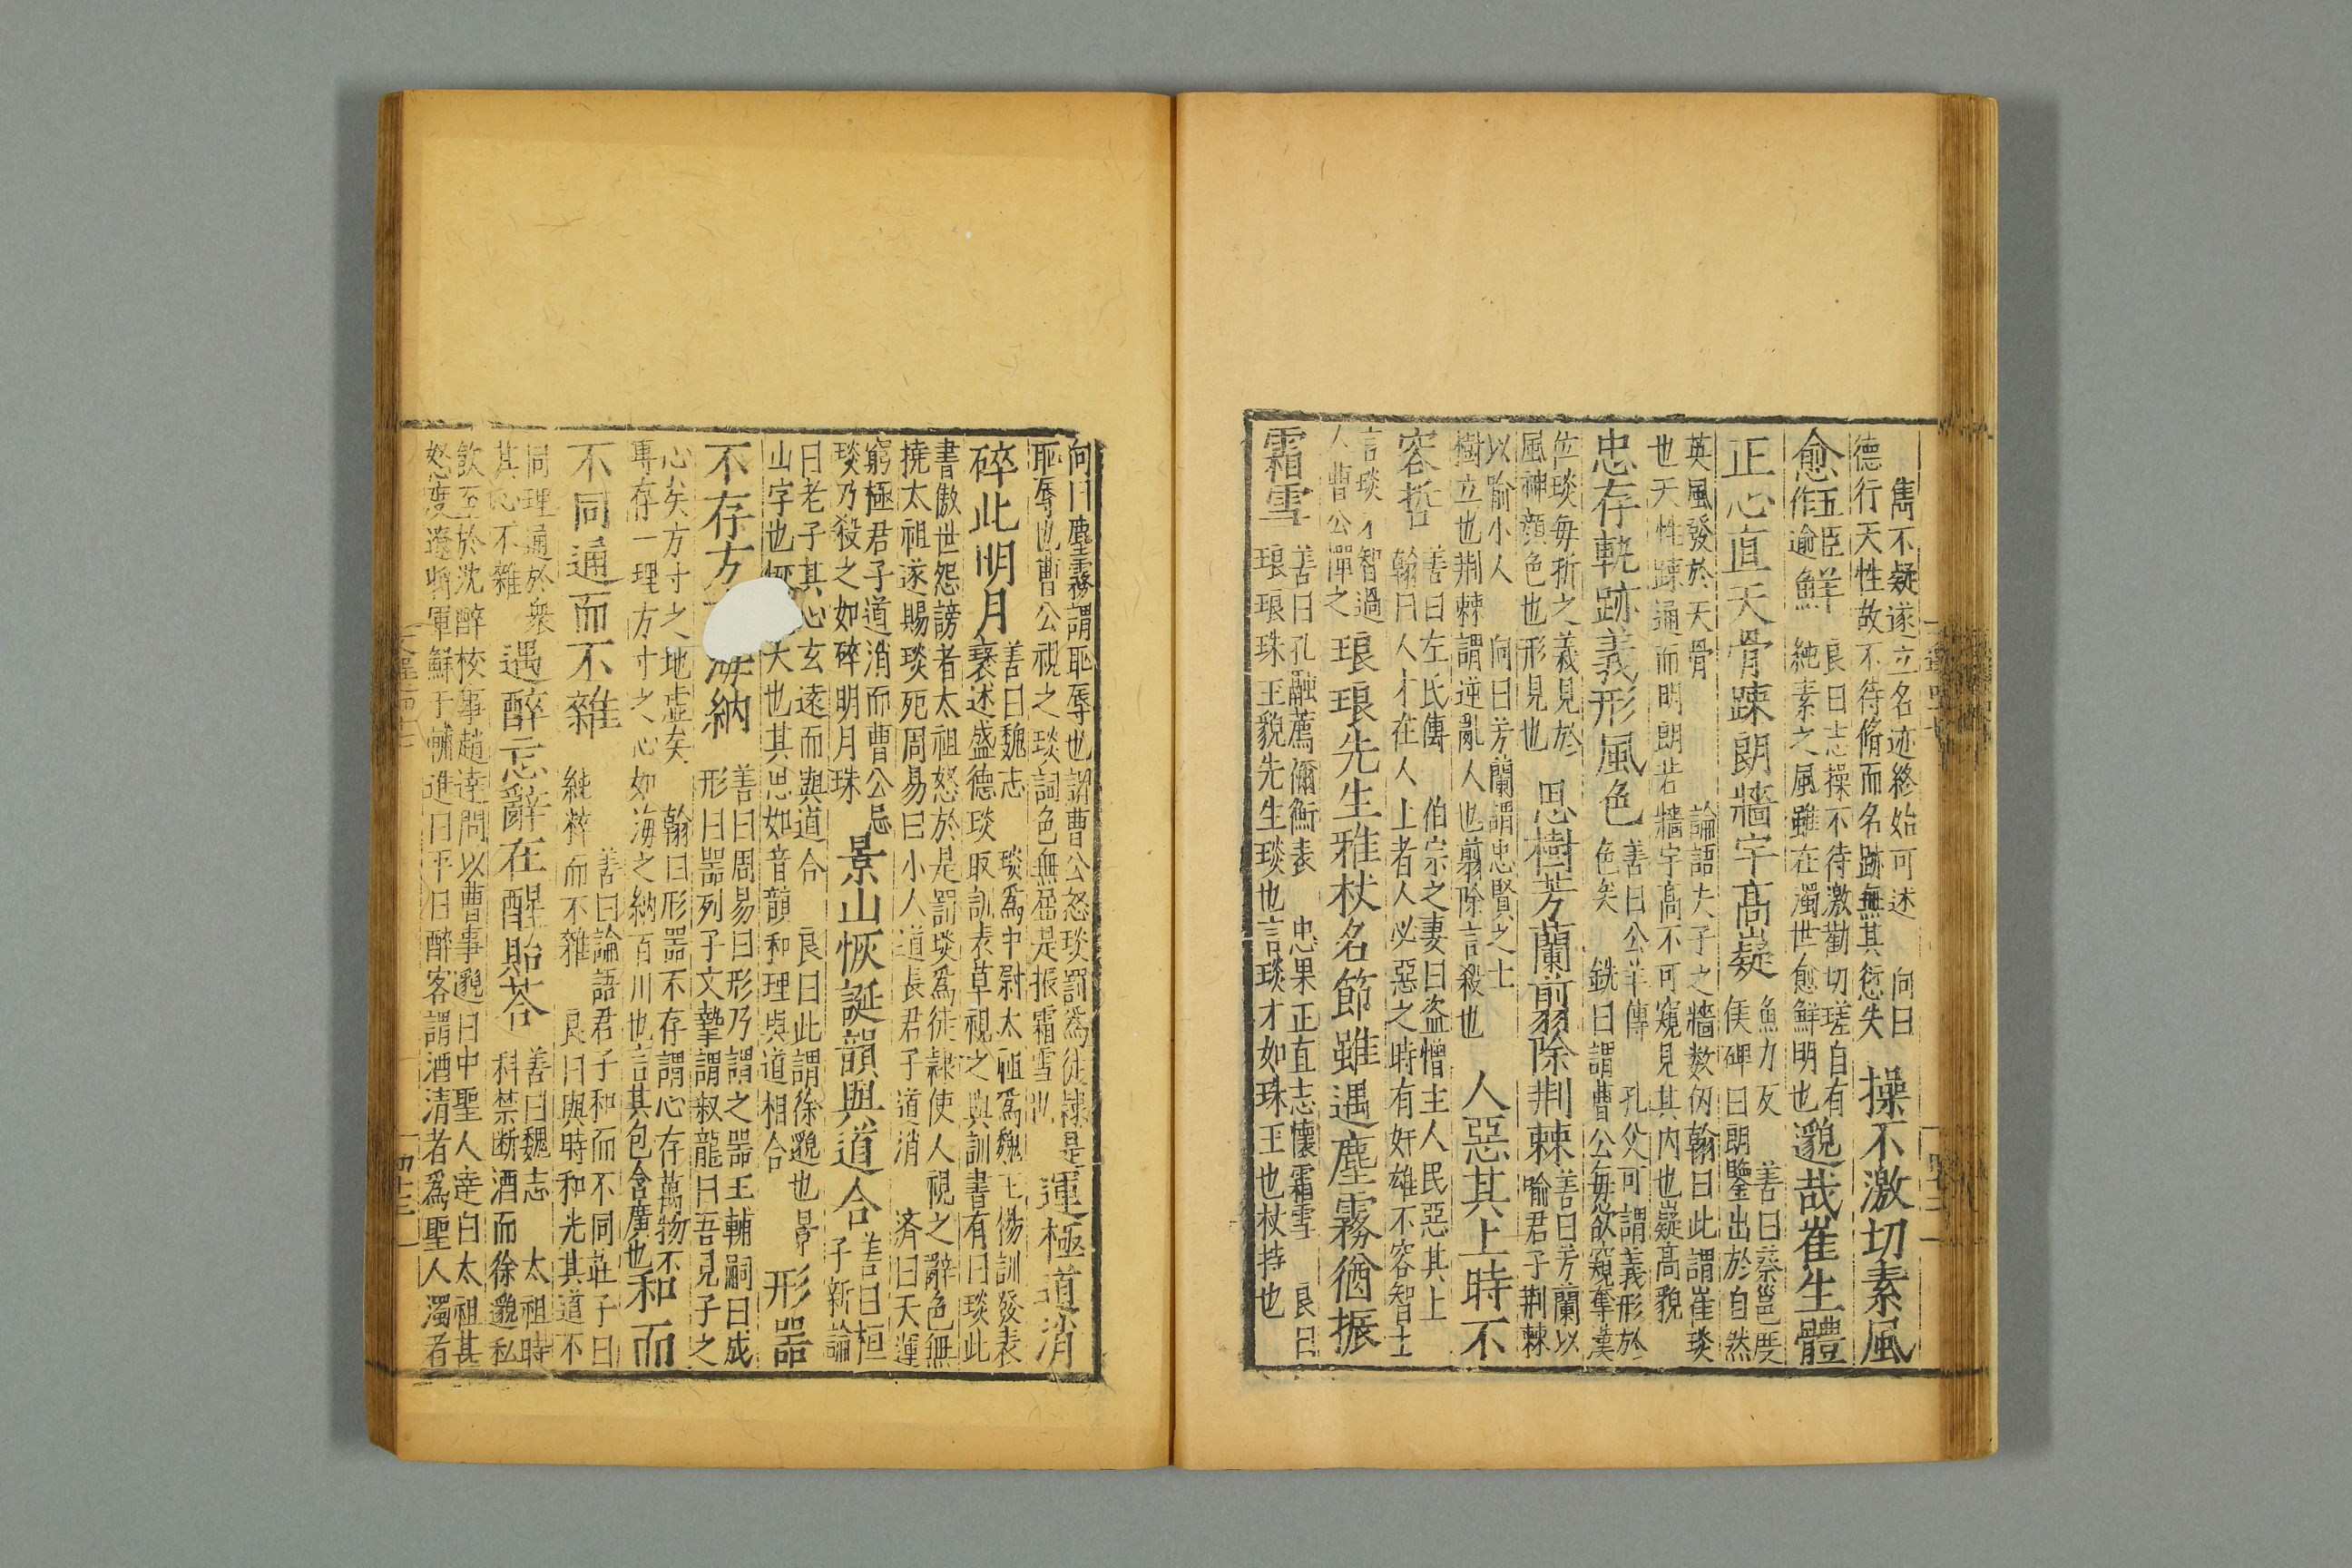 雋不疑遂立名迹終始可述 向曰
德行天性故不待脩而名跡無其愆失
操不激切素風
愈五臣作逾鮮
良曰志操不待激勸切瑳自有
純素之風雖在濁世愈鮮明也
邈哉崔生體
正心直天骨踈朗牆宇高嶷
魚力反 善曰蔡邕度
侯碑曰朗鑒出於自然
英風發於天骨 論語夫子之牆数仞翰曰此謂崔琰
也天性踈通而明朗若牆宇高不可窺見其内也嶷高貌
忠存軌跡義形風色
善曰公羊傳 孔父可謂義形於
色矣 銑曰謂曹公毎慾欲窺奪漢
位琰毎折之義見於
風神顔色也形見也
思樹芳蘭剪除荆棘
善曰芳蘭以
喻君子荆棘
以喻小人 向曰芳蘭謂忠賢之士
樹立也荆棘謂逆亂人也剪除言殺也
人惡其上時不
容哲
善曰左氏傳 伯宗之妻曰盗憎主人民惡其上
翰曰人才在人上者人必惡之時有奸雄不容智士
言琰才智過
人曹公憚之
琅琅先生雅杖名節雖遇塵霧猶振
霜雪
善曰孔融薦禰衡表 忠果正直志懷霜雪 良曰
琅琅珠玉貌先生琰也言琰才如珠玉也杖持也
向曰塵霧謂耻辱也謂曹公怒琰罰爲徒隸是
耻辱也曹公視之琰詞色無屈是振霜雪
運極道消
碎此明月
善曰魏志 琰爲中尉太祖爲魏王楊訓發表
襃述盛德琰取訓表草視之與訓書有曰琰此
書傲世怨謗者太祖怒於是罰琰爲徒隷使人視之辭色無
撓太祖遂賜琰死周易曰小人道長君子道消 濟曰天運
窮極君子道消而曹公忌
琰乃殺之如碎明月珠
景山恢誕韻與道合
善曰桓
子新論
曰老子其心玄遠而與道合 良曰此謂徐邈也景
山字也恢大也其思如音韻和理與道相合
形器
不存方海納
善曰周易曰形乃謂之器王輔嗣曰成
形曰器列子文摯謂叔龍曰吾見子之
心矣方寸之地虚矣 翰曰形器不存謂心存萬物不
專存一理方寸之心如海之納百川也言其包含廣也
和而
不同通而不雜
善曰論語君子和而不同莊子曰
純粹而不雜 良曰與時和光其道不
同理通於衆
其心不雜
遇醉忘辭在醒貽荅
善曰魏志 太祖時
科禁断酒而徐邈私
飲至於沈醉校事趙達問以曹事邈曰中聖人達白太祖甚
怒度遼將軍鮮于輔進曰平日醉客謂酒清者爲聖人濁者